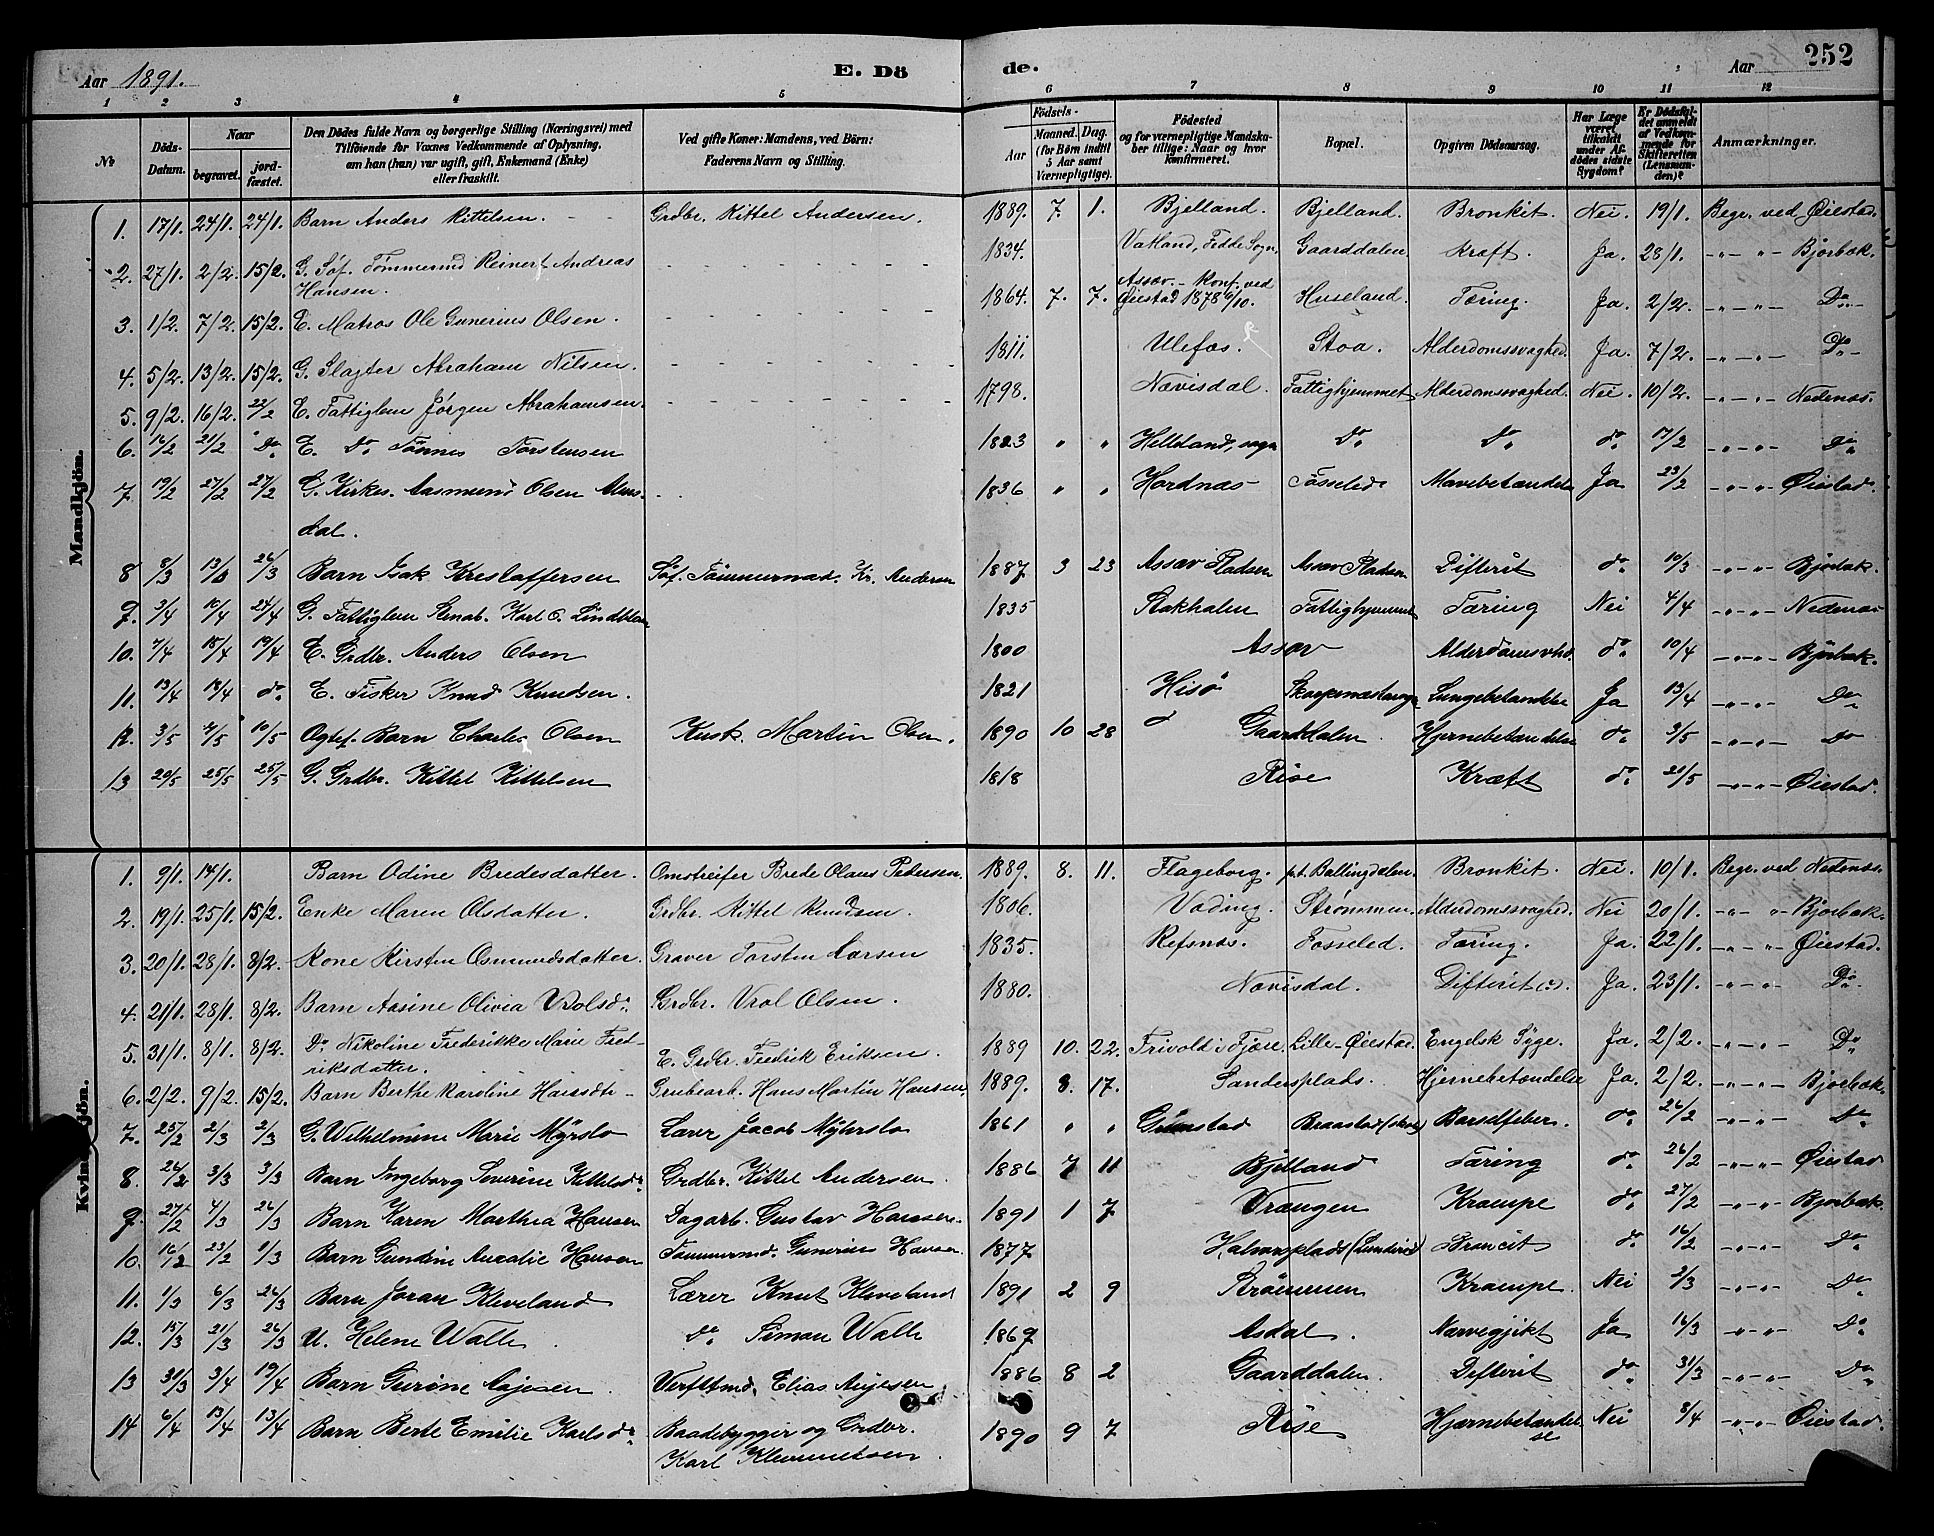 Aar 1891. E. Dö de. Aar 252
1 2 3 4 5 6 7 8 9 10 11 12
№ Döds-Datum. Naar begravet. jordfæstet. Den Dödes fulde Navn og borgerlige Stilling (Næringsvei) med Tilföiende for Voxnes Vedkommende af Oplysning, om han (hun) var ugift, gift, Enkemand (Enke) eller fraskilt. Ved gifte Koner: Mandens, ved Börn: Faderens Navn og Stilling. Födsels- Aar Maaned. Dag. (for Börn indtil 5 Aar samt Værnepligtige). Födested og for værnepligtige Mandskaber tillige: Naar og hvor konfirmeret. Bopæl. Opgiven Dödsaarsag. Har Læge været tilkaldt under Afdödes sidste Sygdom? Er Dödsfaldet anmeldt af Vedkommende for Skifteretten (Lensmanden)? Anmærkninger.
Mandkjön.
1. 17/1. 24/1. 24/1. Barn Anders Kittelsen. Grdbr. Kittel Andersen. 1889. 7. 1. Bjelland. Bjelland. Bronkit. Nei. 19/1. Begr. ved Øiestad.
2. 27/1. 2/2. 15/2. G. Søf. Tømmermd Reinert Andreas Hansen. 1834. Vatland, Fedde Sogn. Gaarddalen. Kræft. Ja. 28/1. -"- " Bjorbæk.
3. 1/2. 7/2. 15/2. E. Matros Ole Gunerius Olsen. 1864. 7. 7. Assæv. - Konf. ved Øiestad 1878 6/10. Huseland. Tæring. Ja. 2/2. -"- " Do
4. 5/2. 13/2. 15/2. G. Slagter Abraham Nilsen. 1811. Ulefos. Stoa. Alderdomssvaghed. Ja. 7/2. -"- " Do
5. 9/2. 16/2. 22/2 E. Fattiglem Jørgen Abrahamsen. 1798. Nævisdal. Fattighjemmet Alderdomssvaghed. Nei. 10/2. -"- " Nedenæs.
6. 16/2 21/2 Do E. Do Tønnes Torstensen 1823 " " Helleland, sogn Do Do do 17/2 -"- " Do
7 19/2 27/2 27/2 G. Kirkes. Aasmund Olsen dal. 1836 " " Hordnæs Fosseled Mavebetændelse Ja 23/2 -"- " Øiestad.
8 8/3 13/3 26/3 Barn Isak Kristoffersen Søf. Tømmermd. Kr. Andersen 1887 3 23 Assæv Pladsen Assæv Pladsen Difterit do 10/3 -"- " Bjorbæk.
9. 3/4 10/4 24/4 G. Fattiglem Karl O. Lindblom 1835 Stokhalen Fattighjemmet Tæring Nei 4/4 -"- " Nedenæs
10. 7/4 15/4 19/4 E. Grdbr. Anders Olsen 1800 Assæv Alderdomsvhd. do 10/4 -"- " Bjorbæk.
11. 13/4 18/4 do E. Fisker Knud Knudsen. 1821 Hisø Lungebetændelse Ja 13/4 -"- " Do
12. 3/5 7/5 10/5 Ogtef. Barn Charles Olsen Kusk. Martin Olsen. 1890 10 28 Gaarddalen. Hjernebetændelse do 3/5 -"- " Do
13 20/5 25/5 25/5 G. Grdbr. Kittel Kittelsen 1818 Rise Kræft do 21/5 -"- " Øiestad.
Kvindekjön.
1. 9/1. 14/1. Barn Odine Bredesdatter. Omstreifer Brede Olaus Pedersen. 1889. 8. 11. Flageborg. p.t. Bøllingdalen. Bronkit. Nei. 10/1. Begr. ved Nedenæs.
2. 19/1. 25/1. 15/2. Enke Maren Olsdatter. Grdbr. Kittel Knudsen. 1806. Voding. Strømmen. Alderdomssvaghed. Nei 20/1. -"- " Bjorbæk.
3. 20/1. 28/1. 8/2. Kone Kirsten Osmundsdatter. Graver Torsten Larsen 1835. Refsnæs. Fosseled. Tæring. Ja. 22/1. -"- " Øiestad.
4. 21/1. 28/1. 8/2. Barn Aasine Olivia Vrolsdr. Grdbr. Vrol Olsen. 1880. Nævisdal. Difterit (?). Ja. 23/1. -"- " Do
5. 31/1. 8/1. 8/2. Do Nikoline Frederikke Marie Fredriksdatter. E. Grdbr. Fredrik Eriksen. 1889 10. 22. Trivold i Fjære. Lille-Øiestad. Engelsk Syge. Ja. 2/2. -"- " Do
6. 2/2. 9/2. 15/2. Barn Berthe Karoline Hansdtr Grubearb. Hans Martin Hansen. 1889. 8. 17. Sandersplads. Hjernebetændelse Ja. 2/2. -"- " Bjorbæk.
7. 25/2 2/3 2/3 G. Wilhelmine Marie Myrslo Lærer Jacob Myhrslo 1861 " " Grimstad Braastad Barselfeber. do 26/2 -"- " Do
8. 26/2 3/3 3/3 Barn Ingeborg Severine Kittelsdr Grdbr. Kittel Andersen. 1886 7 11 Bjelland Tæring do 26/2 -"- " Øiestad
9. 27/2 4/3 26/3 Barn Karen Marthea Hansen Dagarb. Gustav Hansen. 1891 1 7 Vrængen Krampe do 27/2 -"- " Bjorbæk.
10. 16/2 23/2 1/3 Barn Gundine Auralie Hansen Tømmermd. Gunerius Hansen. 1877. Bronkit do 16/2 -"- " Do
11. 1/3 6/3 26/3 Barn Joran Kleveland Lærer Knut Kleveland 1891 2 9 Strømmen Krampe. Nei 2/3 -"- " Do
12. 15/3 21/3 26/3 U. Helene Walle Do Simon Walle 1869 Asdal. Nervegikt Ja 16/3 -"- " Do
13 31/3 3/4 19/4 Barn Gurine Aajesen. Verftsmd. Elias Aajesen 1886 8 2 Gaarddalen. Difterit do 31/3 -"- " Do
14 6/4 13/4 13/4 Barn Berte Emilie Karlsdr Baadebygger og Grdbr. Karl Klemmetsen. 1890 9 7 Rise Hjærnebetændelse Nei 8/4 -"- " Øiestad.